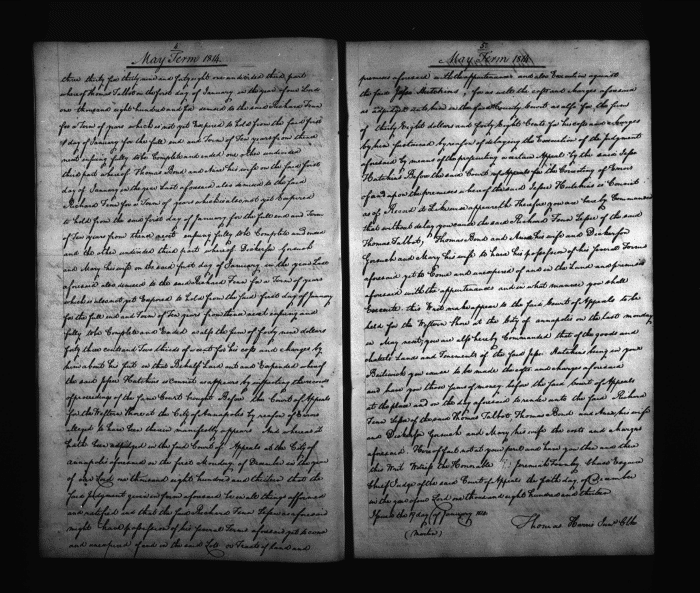 4
May Term 1814.
three thirty five thirty nine and forty eight one undivided third part
whereof Thomas Talbott on the first day of January in the year of our Lord
one thousand eight hundred and five demised to the said Richard Fenn
for a Term of years which is not yet Expired to hold from the said first
day of January for the full end and Term of Ten years from thence
next ensuing fully to be Complete and ended one other undivided
third part whereof Thomas Bond and his wife on the said first
day of January in the year Last aforesaid also demised to the said
Richard Fenn for a Term of years which is also not yet Expired
to hold from the said first day of January for the full end and Term
of Ten years from thence next ensuing fully to be Complete and ended
and the other undivided third part whereof Dickerson Gorsuch
and Mary his wife on the said first day of January in the year Last
aforesaid also demised to the said Richard Fenn for a Term of years
which is also not yet Expired to hold from the said first day of January
for the full end and Term of Ten years from thence next ensuing and
fully to be Complete and Ended as also the sum of forty nine dollars
forty three cents and Two thirds of a cent for his costs and charges by
him about his suit in that Behalf Laid out and Expended whereof
the said Jesse Hutchins is convict as appears by inspecting the record
of proceedings of the said Court brought Before the Court of Appeals
for the Western Shore at the City of Annapolis by reason of Errors
alleged to have been therein manifestly appears And whereas it
hath been adjudged in the said Court of Appeals at the City of
Annapolis aforesaid on the first Monday of December in the year
of our Lord one thousand eight hundred and thirteen that the
said judgment given in form aforesaid be in all things affirmed
and ratified and that the said Richard Fenn Lessee as aforesaid
might have possession of his several Terms aforesaid yet to come
and unexpired of and in the said Lots or Tracts of Land and
5
May Term 1814
premises aforesaid with the appurtenances and also Execution against
the said Jesse Hutchins for as well the costs and charges aforesaid
as adjudged to him in the said County Court as also for the sum
of thirty Eight dollars and forty Eight Cents for his costs and charges
by him sustained by reason of delaying the Execution of the judgment
aforesaid by means of the prosecuting a certain Appeal by the said Jesse
Hutchins Before the said Court of Appeals for the Correcting of Errors
of and upon the premises whereof the said Jesse Hutchins is Convict
as of Record it Likewise appeareth Therefore you are hereby Commanded
that without delay you cause the said Richard Fenn Lessee of the said
Thomas Talbott, Thomas Bond and his wife and Dickerson
Gorsuch and Mary his wife to have his possession of his several Terms
aforesaid yet to Come and unexpired of and in the Land and premises
aforesaid with the appurtenances and in what manner you shall
Execute this Writ make appear to the said Court of Appeals to be
held for the Western Shore at the City of Annapolis on the last monday
in May next, you are also hereby Commanded that of the goods and
chattels Land and Tenements of the said Jesse Hutchins being in your
Bailiwick you cause to be made the costs and charges aforesaid
and have you those sums of money before the said Court of Appeals
at the place and on the day aforesaid to render unto the said Richard
Fenn Lessee of the said Thomas Talbott, Thomas Bond and his wife
and Dickerson Gorsuch and Mary his wife the costs and charges
aforesaid. Hereof fail not at your peril and have you then and there
this Writ Witness the Honorable Jeremiah Townley Chase Esquire
Chief Judge of the said Court of Appeals the day of December
in the year of our Lord one thousand eight hundred and thirteen
Issued the day of January 1814
Thomas Harris Junr Clk